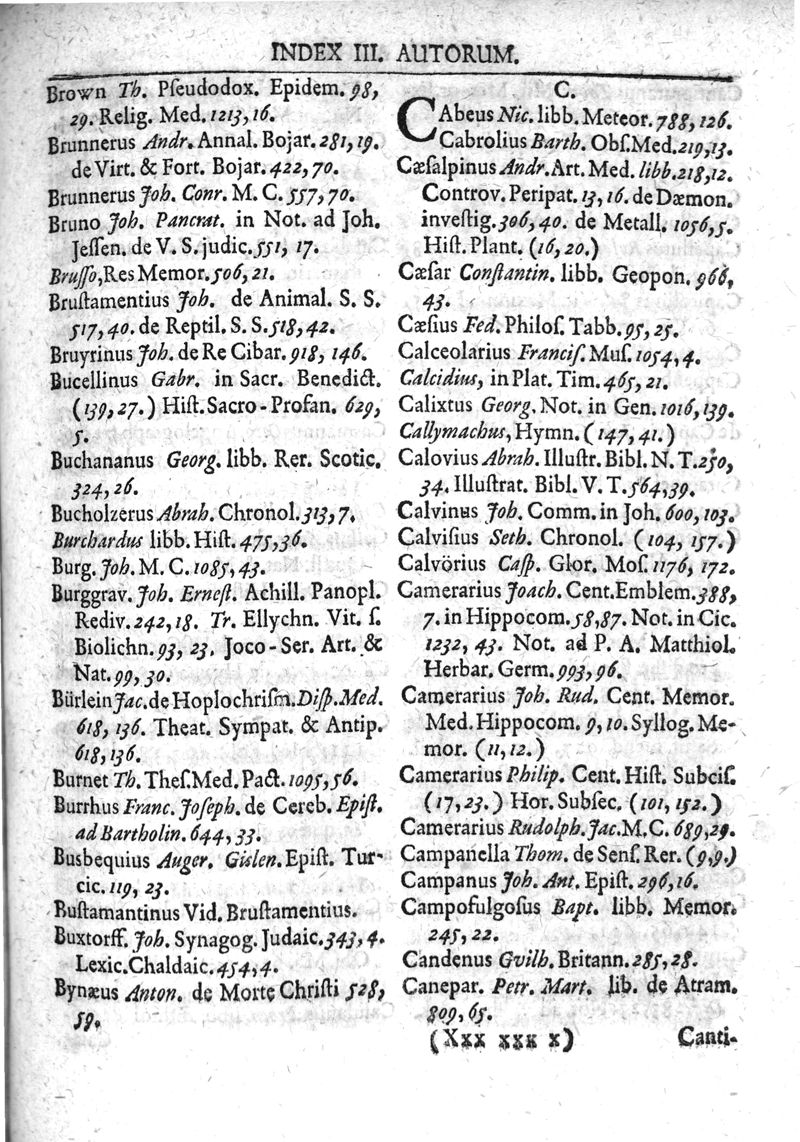 INDEX III. AUTORUM.
Brown Th. Pſeudodox. Epidem. 98,
29. Relig. Med. 1213, 16.
Brunnerus Andr. Annal. Bojar. 281, 19.
de Virt. & Fort. Bojar. 422, 70.
Brunnerus Joh. Conr. M. C. 557, 70.
Bruno Joh. Pancrat. in Not. ad Joh.
Jeſſen. de V. S. judic. 551, 17.
Bruſſo, Res Memor. 506, 21.
Bruſtamentius Joh. de Animal. S. S.
517, 40. de Reptil. S. S. 518, 42.
Bruyrinus Joh. de Re Cibar. 918, 146.
Bucellinus Gabr. in Sacr. Benedict.
(139, 27.) Hiſt. Sacro-Profan. 629,
5.
Buchananus Georg. libb. Rer. Scotic.
324, 26.
Bucholzerus Abrah. Chronol. 313, 7.
Burchardus libb. Hiſt. 475, 36.
Burg. Joh. M. C. 1085, 43.
Burggrav. Joh. Erneſt. Achill. Panopl.
Rediv. 242, 18. Tr. Ellychn. Vit. ſ.
Biolichn. 93, 23. Joco-Ser. Art. &
Nat. 99, 30.
Bürlein Jac. de Hoplochriſm. Diſp. Med.
618, 136. Theat. Sympat. & Antip.
618, 136.
Burnet Th. Theſ. Med. Pact. 1095, 56.
Burrhus Franc. Joſeph. de Cereb. Epiſt.
ad Bartholin. 644, 33.
Busbequius Auger. Gislen. Epiſt. Tur-
cic. 119, 23.
Buſtamantinus Vid. Bruſtamentius.
Buxtorff. Joh. Synagog. Judaic. 343, 4.
Lexic. Chaldaic. 454, 4.
Bynæus Anton. de Morte Chriſti 528,
59.
C.
CAbeus Nic. libb. Meteor. 788, 126.
Cabrolius Barth. Obſ. Med. 219, 13.
Cæſalpinus Andr. Art. Med. libb. 218, 12.
Controv. Peripat. 13, 16. de Dæmon.
inveſtig. 306, 40. de Metall. 1056, 5.
Hiſt. Plant. (16, 20.)
Cæſar Conſtantin. libb. Geopon. 966,
43.
Cæſius Fed. Philoſ. Tabb. 95, 25.
Calceolarius Franciſ. Muſ. 1054, 4.
Calcidius, in Plat. Tim. 465, 21.
Calixtus Georg. Not. in Gen. 1016, 139.
Callymachus, Hymn. (147, 41.)
Calovius Abrah. Illuſtr. Bibl. N. T. 250,
34. Illuſtrat. Bibl. V. T. 564, 39.
Calvinus Joh. Comm. in Joh. 600, 103.
Calviſius Seth. Chronol. (104, 157.)
Calvörius Caſp. Glor. Moſ. 1176, 172.
Camerarius Joach. Cent. Emblem. 388,
7. in Hippocom. 58, 87. Not. in Cic.
1232, 43. Not. ad P. A. Matthiol.
Herbar. Germ. 993, 96.
Camerarius Joh. Rud. Cent. Memor.
Med. Hippocom. 9, 10. Syllog. Me-
mor. (11, 12.)
Camerarius Philip. Cent. Hiſt. Subciſ.
(17, 23.) Hor. Subſec. (101, 152.)
Camerarius Rudolph. Jac. M. C. 689, 29.
Campanella Thom. de Senſ. Rer. (9, 9.)
Campanus Joh. Ant. Epiſt. 296, 16.
Campofulgoſus Bapt. libb. Memor.
245, 22.
Candenus Gvilh. Britann. 285, 28.
Canepar. Petr. Mart. lib. de Atram.
809, 65.
(Xxx xxx x) Canti-